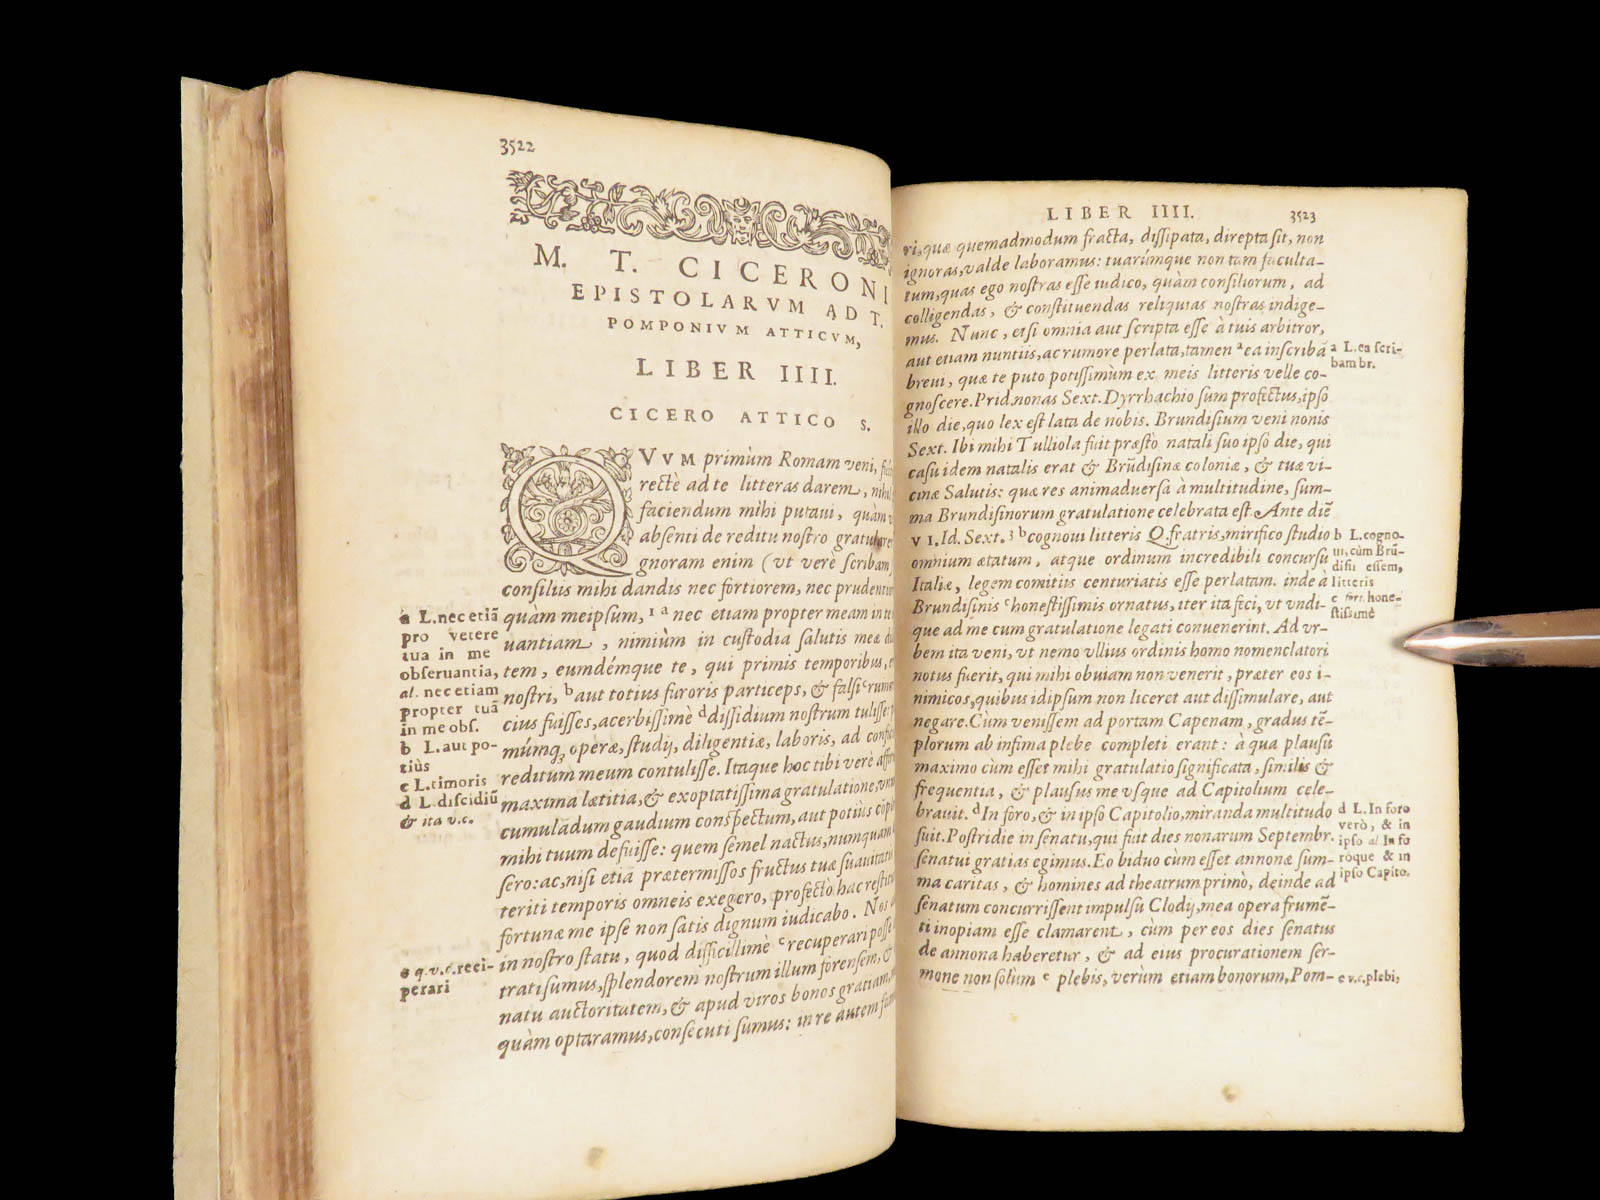 3522
M. T. CICERONI
EPISTOLARVM AD T.
POMPONIVM ATTICVM,
LIBER IIII.
CICERO ATTICO S.
QVVM primùm Romam veni,
rectè ad te litteras darem,
faciendum mihi putaui, quàm
absenti de reditu nostro
gnoram enim (vt verè scribam
consiliis mihi dandis nec fortiorem, nec
quàm meipsum, 1 a nec etiam propter meam in
uantiam, nimiùm in custodia salutis meæ
tem, eumdémque te, qui primis temporibus,
nostri, b aut totius furoris particeps, & falsi c
cius fuisses, acerbissimè d dissidium nostrum
múmq; operæ, studij, diligentiæ, laboris, ad
reditum meum contulisse. Itaque hoc tibi verè
maxima lætitia, & exoptatissima gratulatione,
cumuladum gaudium conspectum, aut potiùs
mihi tuum defuisse: quem semel nactus, nunquam
sero: ac, nisi etiã prætermissos fructus tuæ
teriti temporis omneis exegero, profectò hac
fortunæ me ipse non satis dignum iudicabo. Nos
in nostro statu, quod difficillimè e recuperari posse
trati sumus, splendorem nostrum illum forensem, &
natu auctoritatem, & apud viros bonos gratiam,
quàm optaramus, consecuti sumus: in re autem
a L. nec etiã
pro vetere
tua in me
obseruantia,
al. nec etiam
propter tuã
in me obs.
b L. aut po-
tiùs
c L. timoris
d L. discidiũ
& ita v.c.
e q.v.c. reci-
perari
LIBER IIII. 3523
ri, quæ quemadmodum fracta, dissipata, direpta sit, non
ignoras, valde laboramus: tuarúmque non tam faculta-
tum, quas ego nostras esse iudico, quàm consiliorum, ad
colligendas, & constituendas reliquias nostras indige-
mus. Nunc, etsi omnia aut scripta esse à tuis arbitror,
aut etiam nuntiis, ac rumore perlata, tamen a ea inscribã
breui, quæ te puto potissimùm ex meis litteris velle co-
gnoscere. Prid. nonas Sext. Dyrrhachio sum profectus, ipso
illo die, quo lex est lata de nobis. Brundisium veni nonis
Sext. Ibi mihi Tulliola fuit præstò natali suo ipso die, qui
casu idem natalis erat & Brũdisinæ coloniæ, & tuæ vi-
cinæ Salutis: quæ res animaduersa à multitudine, sum-
ma Brundisinorum gratulatione celebrata est. Ante diẽ
VI. Id. Sext. 3 b cognoui litteris Q. fratris, mirifico studio
omnium ætatum, atque ordinum incredibili concursu
Italiæ, legem comitiis centuriatis esse perlatam. inde à
Brundisinis c honestissimis ornatus, iter ita feci, vt vndi-
que ad me cum gratulatione legati conuenerint. Ad vr-
bem ita veni, vt nemo vllius ordinis homo nomenclatori
notus fuerit, qui mihi obuiam non venerit, præter eos i-
nimicos, quibus id ipsum non liceret aut dissimulare, aut
negare. Cùm venissem ad portam Capenam, gradus tẽ-
plorum ab infima plebe completi erant: à qua plausu
maximo cùm esset mihi gratulatio significata, similis &
frequentia, & plausus me vsque ad Capitolium cele-
brauit. d In foro, & in ipso Capitolio, miranda multitudo
fuit. Postridie in senatu, qui fuit dies nonarum Septembr.
senatui gratias egimus. Eo biduo cùm esset annonæ sum-
ma caritas, & homines ad theatrum primò, deinde ad
senatum concurrissent impulsu Clodij, mea opera frumẽ-
ti inopiam esse clamarent, cùm per eos dies senatus
de annona haberetur, & ad eius procurationem ser-
mone non solùm e plebis, verùm etiam bonorum, Pom-
a L. ea scri-
bam br.
b L. cogno-
ui, cùm Brũ-
disii essem,
litteris
c fort. hone-
stissimè
d L. In foro
verò, & in
ipso al. In fo
róque & in
ipso Capito.
e v.c. plebi,